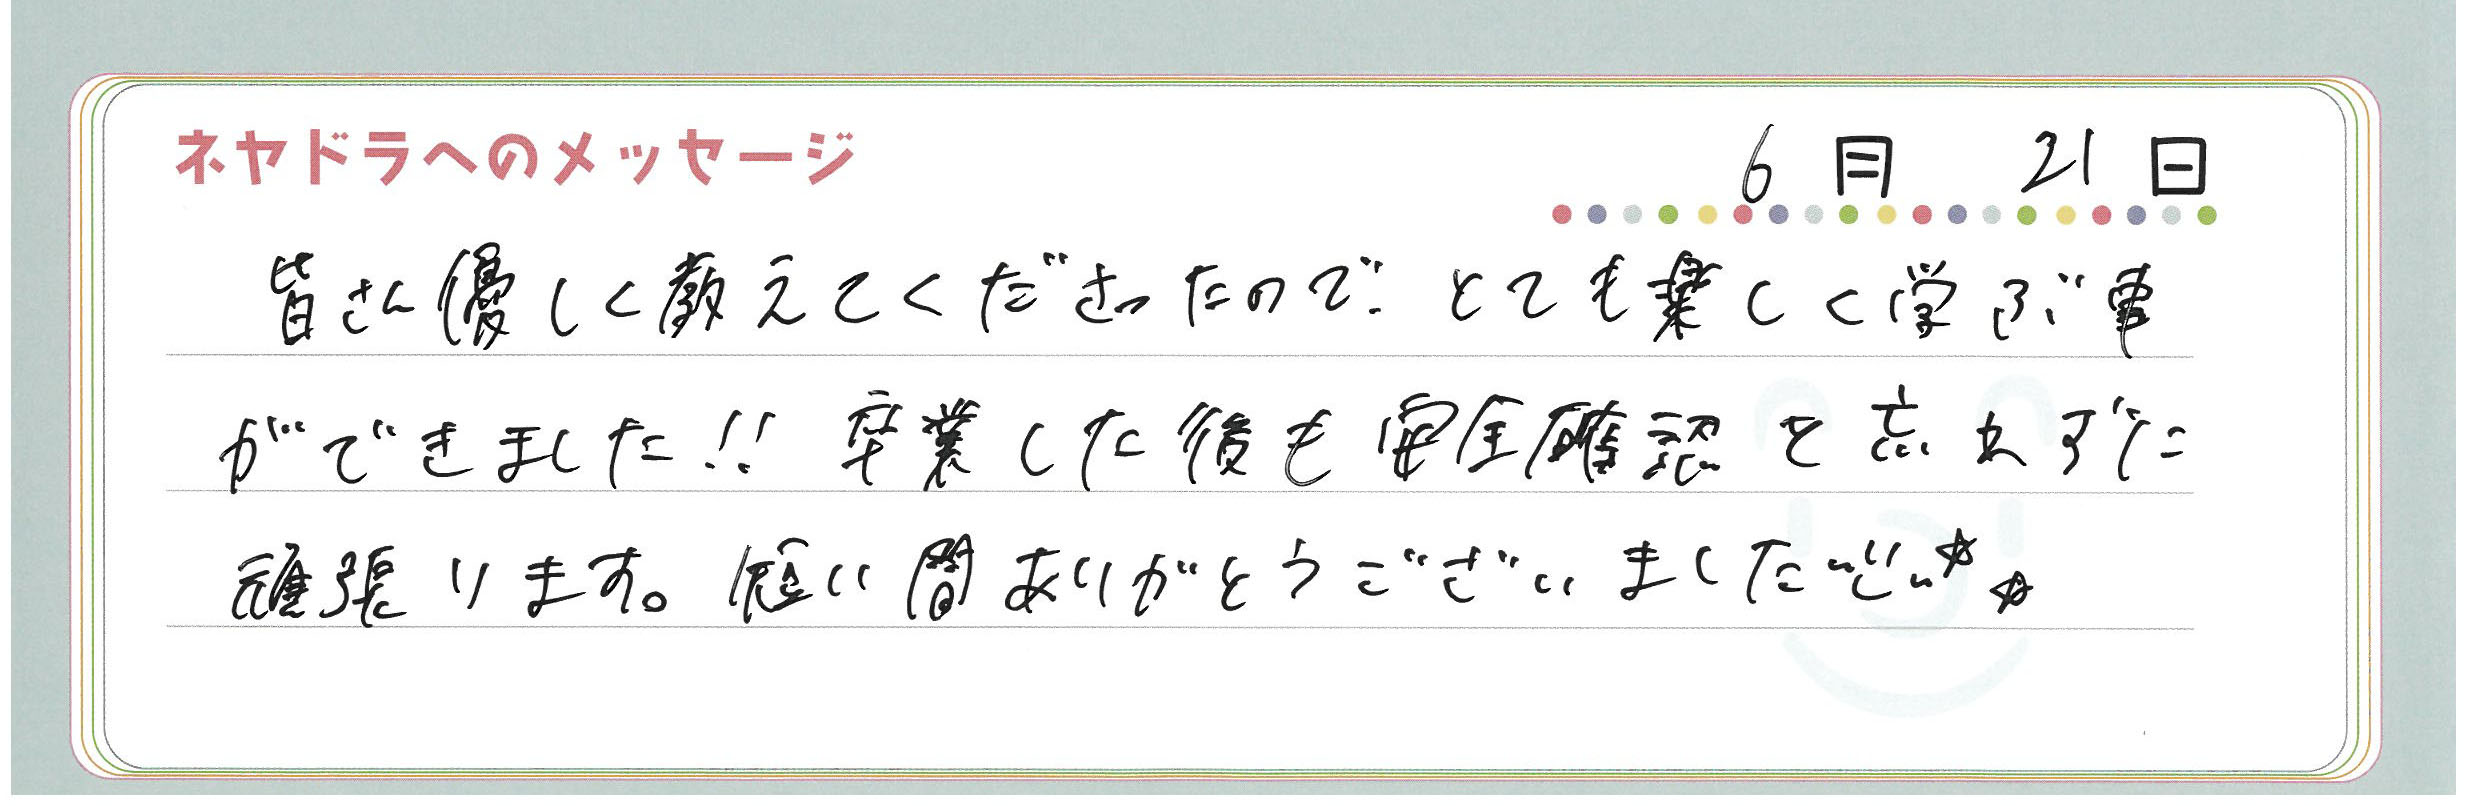 ネヤドラへのメッセージ
6月 21日
皆さん優しく教えてくださったので、とても楽しく学ぶ事
ができました!! 卒業した後も安全確認を忘れずに
頑張ります。短い間ありがとうございました☆☆